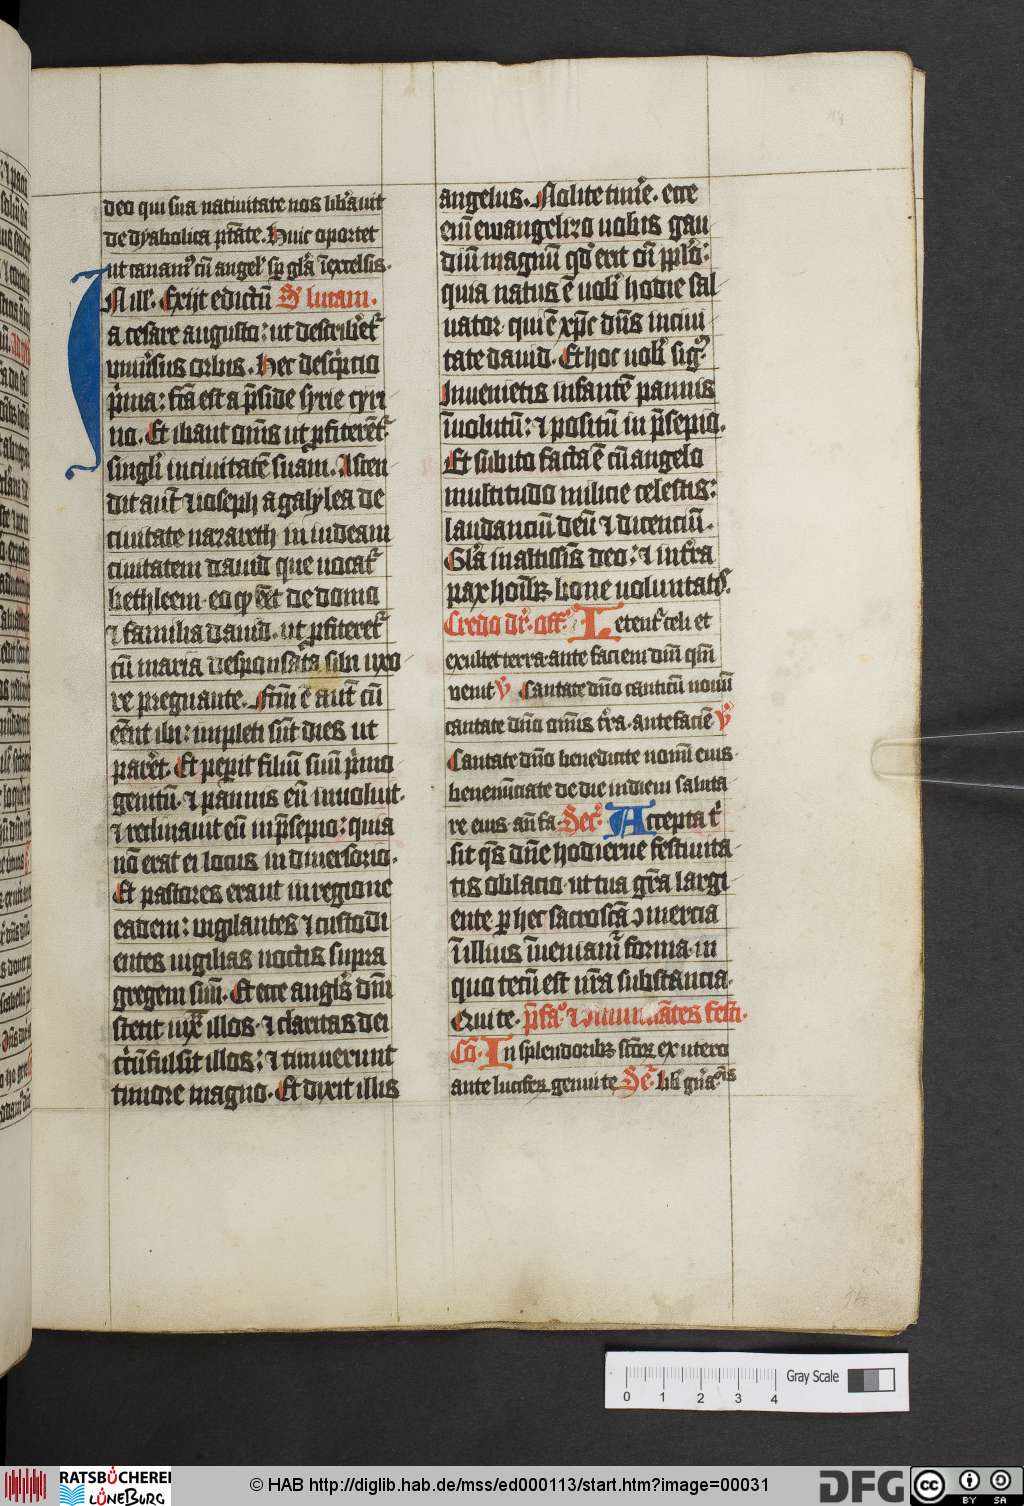 deo qui sua natiuitate nos lib̾auit
de dyabolica ptãte. Huic oportet
ut canam᷒ cũ angel̾ sp̱ gl̃a ĩ excelsis.
IN ill̾. Exijt edictũ S̾ lucam.
a cesare augusto: ut describ̾et᷑
vniu̾sus orbis. Hec desc̾pcio
p̾ma: fc̃a est a p̃side syrie cyri
no. Et ibant om̃s ut ꝓfiterẽt᷑
singl̾i in ciuitatẽ suam. Ascen
dit aut̃ ⁊ ioseph a galylea de
ciuitate nazareth in iudeam
ciuitatem dauid que uocat᷑
bethleem. eo ꝙ eẽt de domo
⁊ familia dauid. ut ꝓfiteret᷑
cũ maria desponsata sibi uxo
re pregnante. Fc̃m ẽ aut̃ cũ
eẽnt ibi: impleti sũt dies ut
par̾et. Et pep̾it filiũ suũ p̾mo
genitũ. ⁊ pannis eũ inuoluit.
⁊ reclinauit eũ in p̃sepio: quia
nõ erat ei locus in diuersorio.
Et pastores erant in regione
eadem: uigilantes ⁊ custodi
entes uigilias noctis supra
gregem suũ. Et ecce angl̾s dñi
stetit iuxᷓ illos. ⁊ claritas dei
circũfulsit illos: ⁊ timuerunt
timore magno. Et dixit illis
angelus. Nolite tim̾e. ecce
eni̅ ewangelizo uobis gau
diũ magnũ qd̾ erit om̃i pplo̾:
quia natus ẽ uob̾ hodie sal
uator. qui ẽ xp̃c dñs in ciui
tate dauid. Et hoc uob̾ sig᷒.
Inuenietis infantẽ pannis
ĩuolutũ: ⁊ positũ in p̃sepio.
Et subito facta ẽ cũ angelo
multitudo milicie celestis:
laudanciũ deũ ⁊ dicenciũ.
Gl̃a in altissis̃ deo: ⁊ in t̾ra
pax hoĩbꝫ bone uoluntatis.
Credo dr̾. off̾. Letent᷑ celi et
exultet terra ante faciem dñi qm̃
venit v̾ Cantate dño canticũ nouũ
cantate dño omnis t̾ra. ante faciẽ v̾
Cantate dño benedicite nomi̅ eius
benenũciate de die in diem saluta
re eius. an̄ fa. Secr̾. Accepta t̾
sit qs̃ dñe hodierne festiuita
tis oblacio. ut tua gr̃a largi
ente ꝑ hec sacrosc̃a ꝯmercia
ĩ illius ĩueniamr̾ forma. in
quo tecũ est nr̃a substancia.
Qui te. p̃fa᷒ ⁊
Cõ. In splendoribꝫ sc̃oꝝ ex utero
ante lucifeꝝ. genui te
© HAB http://diglib.hab.de/mss/ed000113/start.htm?image=00031
RATSBÜCHEREI
LÜNEBURG
DFG
cc BY SA
0 1 2 3 4
Gray Scale
14